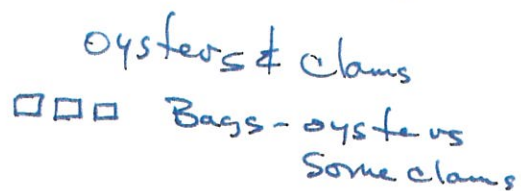 oysters & clams
□ □ □ Bags - oysters
Some clams